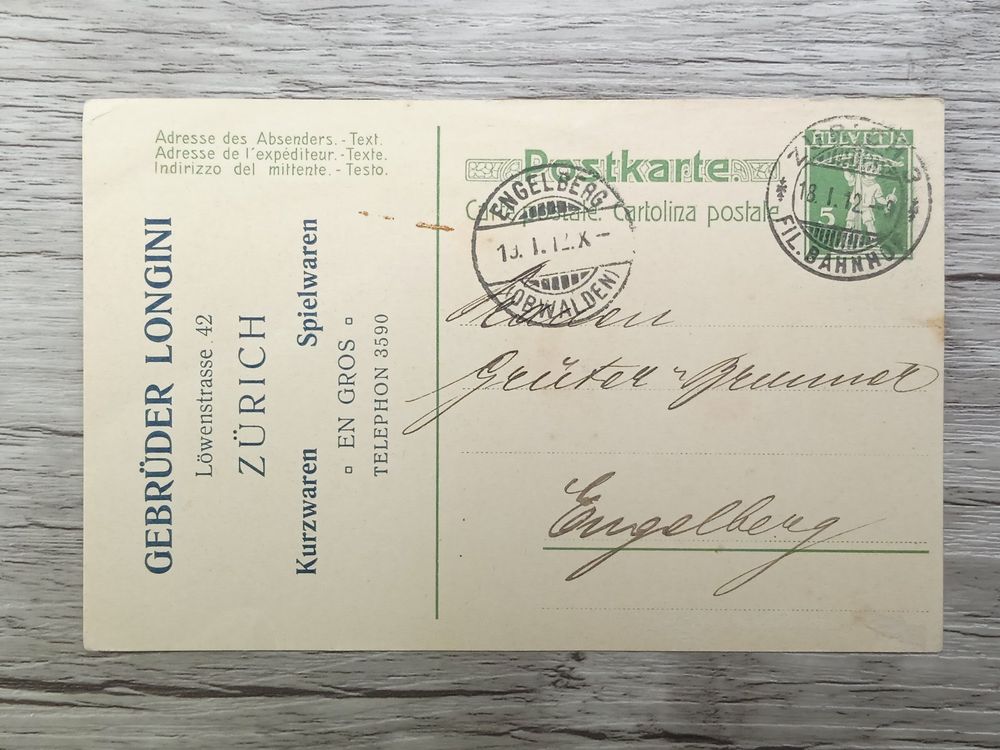 Adresse des Absenders.-Text.
Adresse de l'expéditeur.-Texte.
Indirizzo del mittente.-Testo.
GEBRÜDER LONGINI
Löwenstrasse 42
ZÜRICH
Kurzwaren Spielwaren
EN GROS
TELEPHON 3590
Postkarte.
Carte postale. Cartolina postale
ENGELBERG
I.12.X–
(OBWALDEN)
HELVETIA
5
I.12
FIL. BAHNHOF
Grüter-Brunner
Engelberg